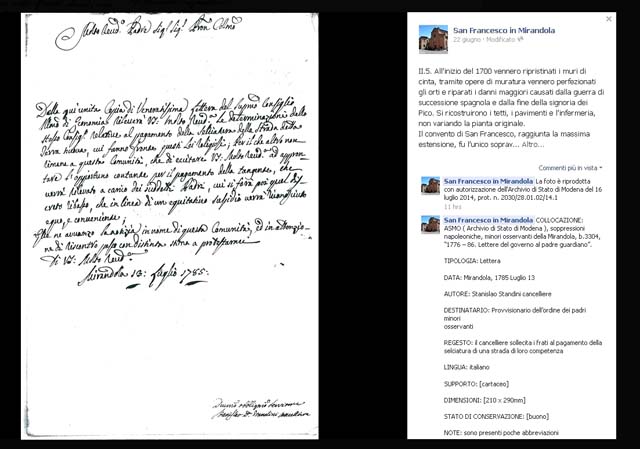 Molto Rev.do Padre Sig.r Sig.r Pron Colmo
Dalla qui unita Copia di Veneratissima lettera del Supmo Consiglio
di Economia rileverà V.a Molto Rev.da la determinazione dello
stesso Consiglio relativa al pagamento della Selciatura della Strada
Terra
timane a questa Comunità, che di eccitare V.a Molto Rev.da ad appron-
tare l'opportuno contante per il pagamento della tangente, che
verrà rilevato a carico di suddetti Padri, cui si farà poi quel di-
screto rilasso, che in linea di un equitativo sussidio verrà
equo, e conveniente.
in nome di questa Comunità, ed in attenzio-
ne di riscontro passo con distinta stima a protestarmi
Di V.a Molto Rev.da
Mirandola 13. Luglio 1785.
San Francesco in Mirandola
22 giugno · Modificato
II.5. All'inizio del 1700 vennero ripristinati i muri di
cinta, tramite opere di muratura vennero perfezionati
gli orti e riparati i danni maggiori causati dalla guerra di
successione spagnola e dalla fine della signoria dei
Pico. Si ricostruirono i tetti, i pavimenti e l'infermeria,
non variando la pianta originale.
Il convento di San Francesco, raggiunta la massima
estensione, fu l'unico soprav... Altro...
Commenti più in vista
San Francesco in Mirandola La foto è riprodotta
con autorizzazione dell'Archivio di Stato di Modena del 16
luglio 2014, prot. n. 2030/28.01.02/14.1
11 hrs
San Francesco in Mirandola COLLOCAZIONE:
ASMO ( Archivio di Stato di Modena ), soppressioni
napoleoniche, minori osservanti della Mirandola, b.3304,
"1776 – 86. Lettere del governo al padre guardiano".
TIPOLOGIA: Lettera
DATA: Mirandola, 1785 Luglio 13
AUTORE: Stanislao Standini cancelliere
DESTINATARIO: Provvisionario dell'ordine dei padri
minori
osservanti
REGESTO: il cancelliere sollecita i frati al pagamento della
selciatura di una strada di loro competenza
LINGUA: italiano
SUPPORTO: [cartaceo]
DIMENSIONI: [210 x 290mm]
STATO DI CONSERVAZIONE: [buono]
NOTE: sono presenti poche abbreviazioni